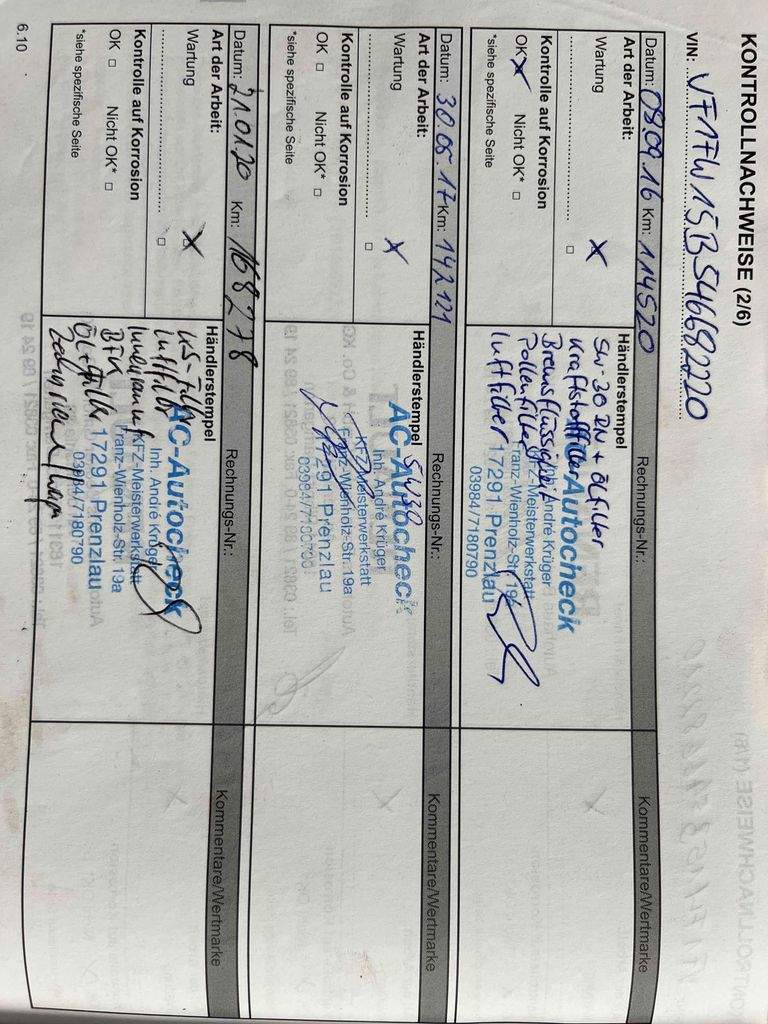 KONTROLLNACHWEISE (2/6)
VIN: VF1FW15B546682220
Datum: 09.09.16 Km: 114520
Rechnungs-Nr.:
Kommentare/Wertmarke
Art der Arbeit:
Wartung
Kontrolle auf Korrosion
OK Nicht OK*
*siehe spezifische Seite
Händlerstempel
5W-30 RN + Ölfilter
Kraftstofffilter
Bremsflüssigkeit
Pollenfilter
Luftfilter
AC-Autocheck
Inh. André Krüger
KFZ-Meisterwerkstatt
Franz-Wienholz-Str. 19a
17291 Prenzlau
03984/7180790
Datum: 30.05.17 Km: 142121
Rechnungs-Nr.:
Kommentare/Wertmarke
Art der Arbeit:
Wartung
Kontrolle auf Korrosion
OK Nicht OK*
*siehe spezifische Seite
Händlerstempel
5W30
AC-Autocheck
Inh. André Krüger
KFZ-Meisterwerkstatt
Franz-Wienholz-Str. 19a
17291 Prenzlau
03984/7180790
Datum: 21.01.20 Km: 168278
Rechnungs-Nr.:
Kommentare/Wertmarke
Art der Arbeit:
Wartung
Kontrolle auf Korrosion
OK Nicht OK*
*siehe spezifische Seite
Händlerstempel
KS-Filter
Luftfilter
Innenraumf.
BFK
Öl + Filter
Zahnriemen
AC-Autocheck
Inh. André Krüger
KFZ-Meisterwerkstatt
Franz-Wienholz-Str. 19a
17291 Prenzlau
03984/7180790
6.10